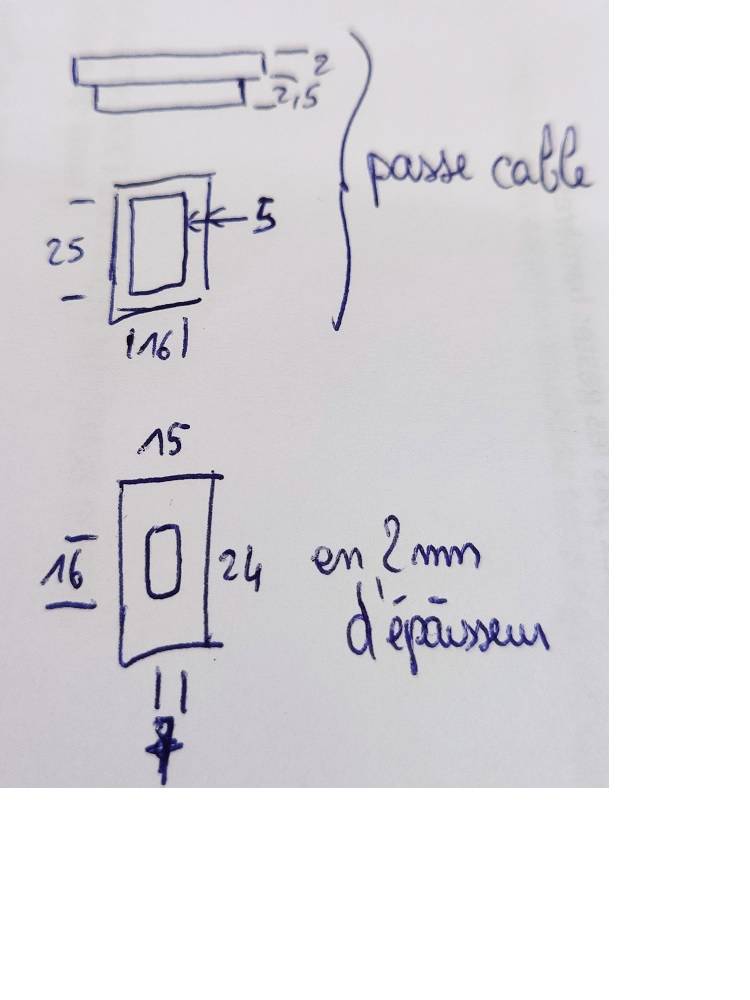 2
2,5
passe cable
25
5
16
15
16
24
en 2 mm
d'épaisseur
7